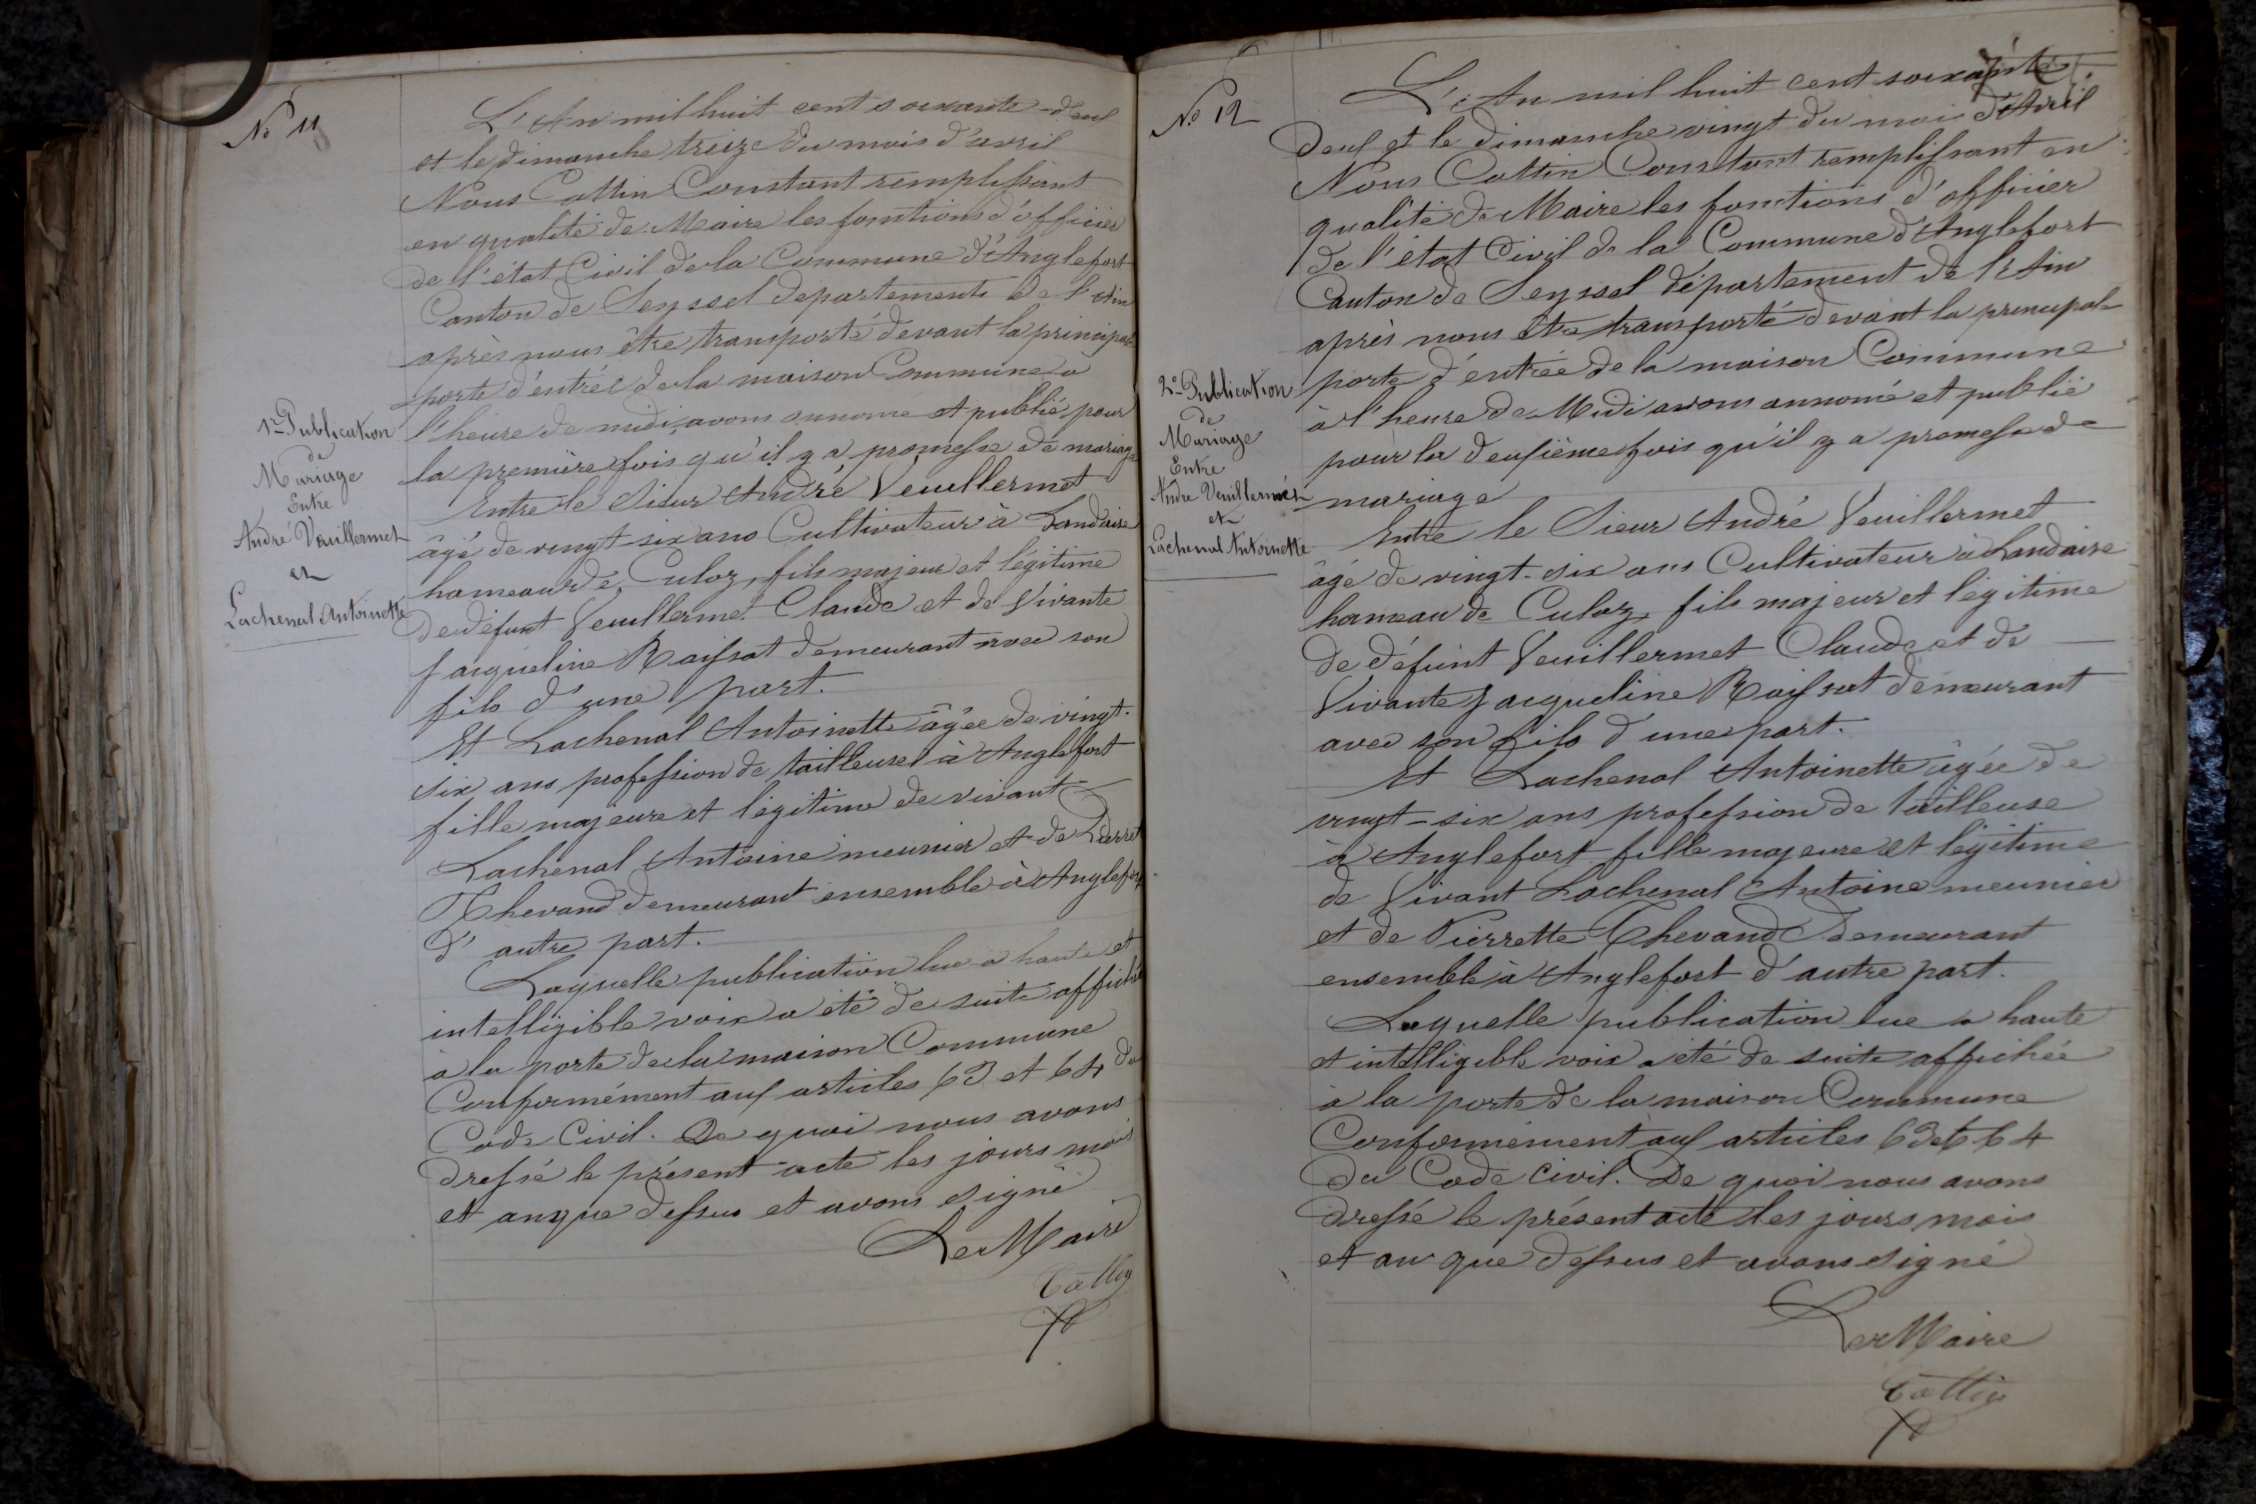 Nº 11
1re Publication
de
Mariage
Entre
André Veuillermet
et
Lachenal Antoinette
L'An mil huit cent soixante-deux
et le dimanche treize du mois d'avril
Nous Cattin Constant remplissant
en qualité de Maire les fonctions d'officier
de l'état Civil de la Commune d'Anglefort
Canton de Seyssel departement de l'Ain
après nous être transporté devant la principale
porte d'entrée de la maison Commune a
l'heure de midi, avons annoncé et publié pour
la première fois qu'il y a promesse de mariage
Entre le Sieur André Veuillermet
âgé de vingt-six ans Cultivateur à Landaise
hameau de Culoz, fils majeur et légitime
de défunt Veuillermet Claude et de Vivante
Jacqueline Raissat demeurant avec son
fils d'une part.
Et Lachenal Antoinette âgée de vingt-
six ans profession de tailleuse à Anglefort
fille majeure et légitime de vivant
Lachenal Antoine meunier et de Pierrette
Thevand demeurant ensemble à Anglefort
d'autre part.
Laquelle publication lue a haute et
intelligible voix a été de suite affichée
à la porte de la maison Commune
Conformément aux articles 63 et 64 du
Code Civil. De quoi nous avons
dressé le présent acte les jours mois
et an que dessus et avons signé
Le Maire
Cattin
Nº 12
2e Publication
de
Mariage
Entre
André Veuillermet
et
Lachenal Antoinette
L'An mil huit cent soixante
deux et le dimanche vingt du mois d'Avril
Nous Cattin Constant remplissant en
qualité de Maire les fonctions d'officier
de l'état Civil de la Commune d'Anglefort
Canton de Seyssel département de l'Ain
après nous être transporté devant la principale
porte d'entrée de la maison Commune
à l'heure de Midi avons annoncé et publié
pour la deuxième fois qu'il y a promesse de
mariage
Entre le Sieur André Veuillermet
âgé de vingt-six ans Cultivateur à Landaise
hameau de Culoz, fils majeur et légitime
de défunt Veuillermet Claude et de
Vivante Jacqueline Raissat demeurant
avec son fils d'une part.
Et Lachenal Antoinette âgée de
vingt-six ans profession de tailleuse
à Anglefort fille majeure et légitime
de Vivant Lachenal Antoine meunier
et de Pierrette Thevand demeurant
ensemble à Anglefort d'autre part.
Laquelle publication lue a haute
et intelligible voix a été de suite affichée
à la porte de la maison Commune
Conformément aux articles 63 et 64
du Code civil. De quoi nous avons
dressé le présent acte les jours, mois
et an que dessus et avons signé
Le Maire
Cattin